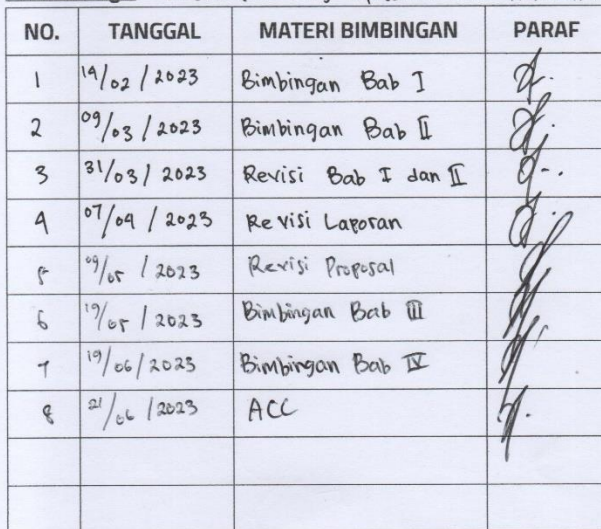 NO. TANGGAL MATERI BIMBINGAN PARAF
1 14/02/2023 Bimbingan Bab I
2 09/03/2023 Bimbingan Bab II
3 31/03/2023 Revisi Bab I dan II
4 07/04/2023 Revisi Laporan
5 09/05/2023 Revisi Proposal
6 19/05/2023 Bimbingan Bab III
7 19/06/2023 Bimbingan Bab IV
8 21/06/2023 ACC